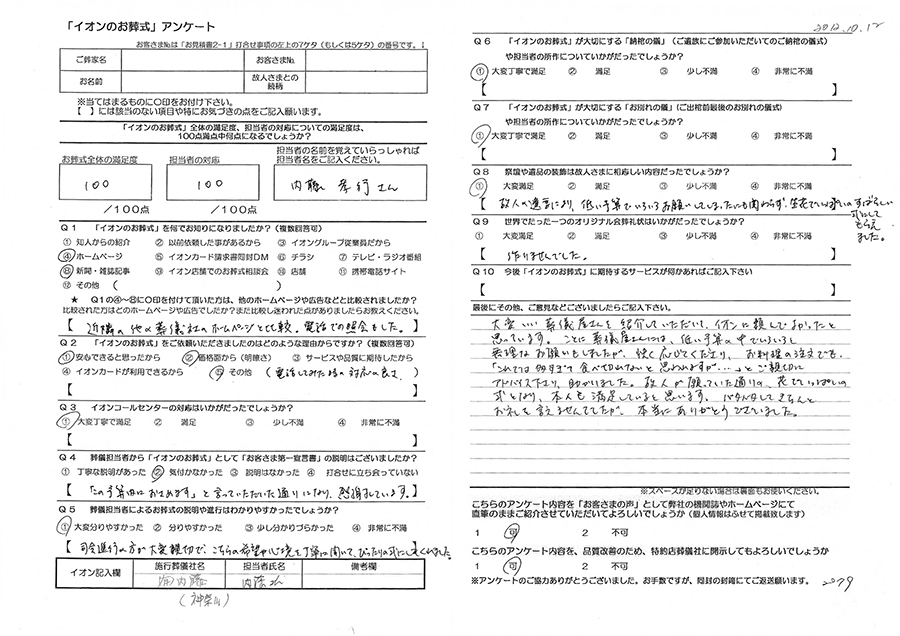 「イオンのお葬式」アンケート
お客さま№は「お見積書2-1」打合せ事項の左上の7ケタ(もしくは5ケタ)の番号です。↓
ご葬家名 お客さま№
お名前 故人さまとの続柄
※当てはまるものに○印をお付け下さい。
【 】には該当のない項目や特にお気づきの点をご記入願います。
「イオンのお葬式」全体の満足度、担当者の対応についての満足度は、
100点満点中何点になるでしょうか?
お葬式全体の満足度 担当者の対応 担当者の名前を覚えていらっしゃれば
担当者名をご記入ください。
100 100 内藤 孝行さん
/100点 /100点
Q1 「イオンのお葬式」を何でお知りになりましたか?(複数回答可)
① 知人からの紹介 ② 以前依頼した事があるから ③ イオングループ従業員だから
④ ホームページ ⑤ イオンカード請求書同封DM ⑥ チラシ ⑦ テレビ・ラジオ番組
⑧ 新聞・雑誌記事 ⑨ イオン店舗でのお葬式相談会 ⑩ 店舗 ⑪ 携帯電話サイト
⑫ その他 ( )
★ Q1の④~⑧に○印を付けて頂いた方は、他のホームページや広告などと比較されましたか?
比較された方はどのホームページや広告でしたか?また比較し迷われた点がありましたらお教えください。
【 近隣の他の葬儀社のホームページと比較。電話での照会もした。 】
Q2 「イオンのお葬式」をご依頼いただきましたのはどのような理由からですか?(複数回答可)
① 安心できると思ったから ② 価格面から(明瞭さ) ③ サービスや品質に期待したから
④ イオンカードが利用できるから ⑤ その他 (電話してみた時の対応の良さ)
【 】
Q3 イオンコールセンターの対応はいかがだったでしょうか?
① 大変丁寧で満足 ② 満足 ③ 少し不満 ④ 非常に不満
【 】
Q4 葬儀担当者から「イオンのお葬式」として「お客さま第一宣言書」の説明はございましたか?
① 丁寧な説明があった ② 気付かなかった ③ 説明はなかった ④ 打合せに立ち会っていない
【 「この予算内におさめます」と言っていただいた通りになり、感謝しています。 】
Q5 葬儀担当者によるお葬式の説明や進行はわかりやすかったでしょうか?
① 大変分りやすかった ② 分りやすかった ③ 少し分りづらかった ④ 非常に不満
【 司会進行の方が大変親切で、こちらの希望や心境を丁寧に聞いて、ぴったりの式にしてくれました。
イオン記入欄 施行葬儀社名 担当者氏名 備考欄
㈲内藤 内藤さん
(神奈川)
2012.10.12
Q6 「イオンのお葬式」が大切にする「納棺の儀」(ご遺族にご参加いただいてのご納棺の儀式)
や担当者の所作についていかがだったでしょうか?
① 大変丁寧で満足 ② 満足 ③ 少し不満 ④ 非常に不満
【 】
Q7 「イオンのお葬式」が大切にする「お別れの儀」(ご出棺前最後のお別れの儀式)
や担当者の所作についていかがだったでしょうか?
① 大変丁寧で満足 ② 満足 ③ 少し不満 ④ 非常に不満
【 】
Q8 祭壇や遺品の装飾は故人さまに相応しい内容だったでしょうか?
① 大変満足 ② 満足 ③ 少し不満 ④ 非常に不満
【 故人の遺言により、低い予算でいろいろお願いしてしまったにも関わらず、生花でいっぱいのすばらしい
式にして
もらえ
ました。
Q9 世界でたった一つのオリジナル会葬礼状はいかがだったでしょうか?
① 大変満足 ② 満足 ③ 少し不満 ④ 非常に不満
【 作りませんでした。 】
Q10 今後「イオンのお葬式」に期待するサービスが何かあればご記入下さい
【 】
最後にその他、ご意見などございましたらご記入下さい。
大変いい葬儀屋さんを紹介していただいて、イオンに頼んでよかったと
思っています。ことに葬儀屋さんには、低い予算の中でいろいろ
無理なお願いもしましたが、快く応じてくださり、お料理の注文でも、
「これでは多すぎて食べ切れないと思われますが…」とご親切に
アドバイス下さり、助かりました。故人が願っていた通りの、花でいっぱいの
式となり、本人も満足していると思います。バタバタしてきちんと
お礼も言えませんでしたが、本当にありがとうございました。
※スペースが足りない場合は裏面もお使いください。
こちらのアンケート内容を「お客さまの声」として弊社の機関誌やホームページにて
直筆のままご紹介させていただいてよろしいでしょうか(個人情報はふせて掲載致します)
1 可 2 不可
こちらのアンケート内容を、品質改善のため、特約店葬儀社に開示してもよろしいでしょうか
1 可 2 不可
※アンケートのご協力ありがとうございました。お手数ですが、同封の封筒にてご返送願います。 2079